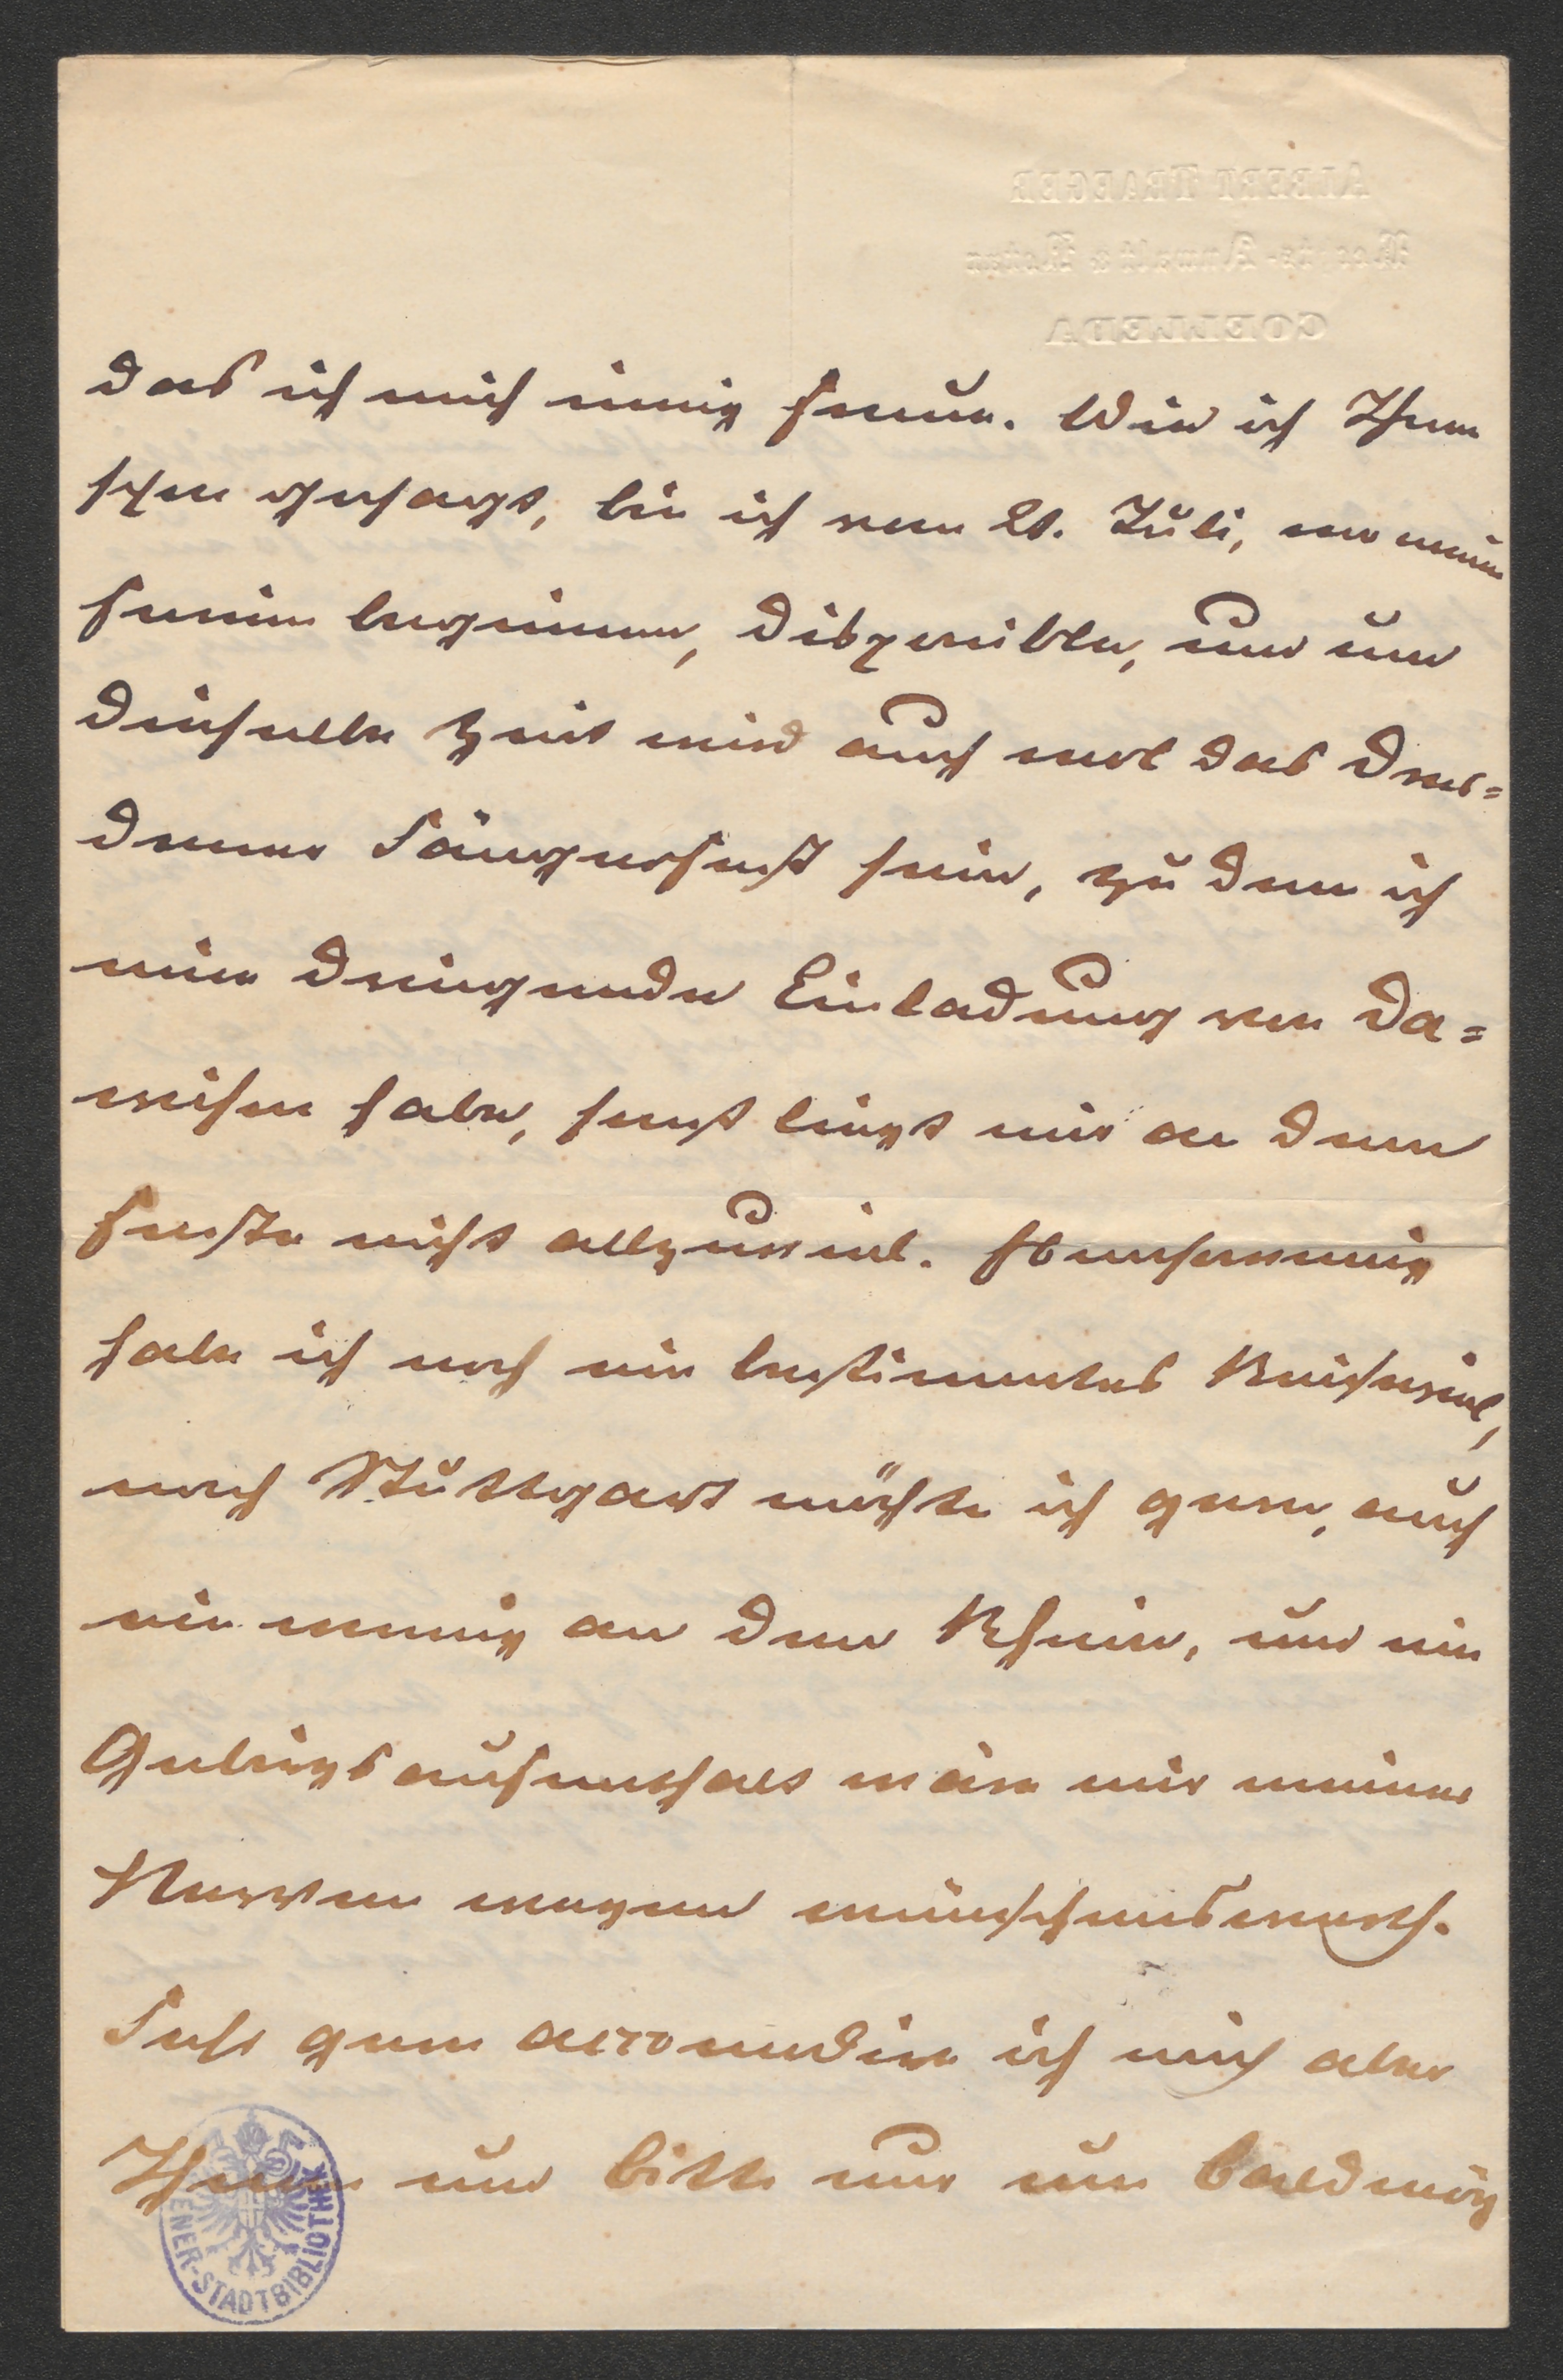 ALBERT TRAEGER
Rechts-Anwalt & Notar
COELLEDA
das ich mich innig freue. Wie ich Ihnen
schon gesagt, bin ich vom 21. Juli, wo meine
Ferien beginnen, disponible, und um
dieselbe Zeit wird auch wol das Dres=
dener Sängerfest sein, zu dem ich
eine dringende Einladung von Da=
weisen habe, sonst liegt mir an dem
Feste nicht allzuviel. Ebensowenig
habe ich noch ein bestimmtes Reiseziel,
nach Stuttgart möchte ich gern, auch
ein wenig an den Rhein, und ein
Gebirgsaufenthalt wäre mir meiner
Nerven wegen wünschenswerth.
Sehr gern accomodire ich mich aber
Ihnen und bitte nur um baldmög
ENER-STADTBIBLIOTHEK